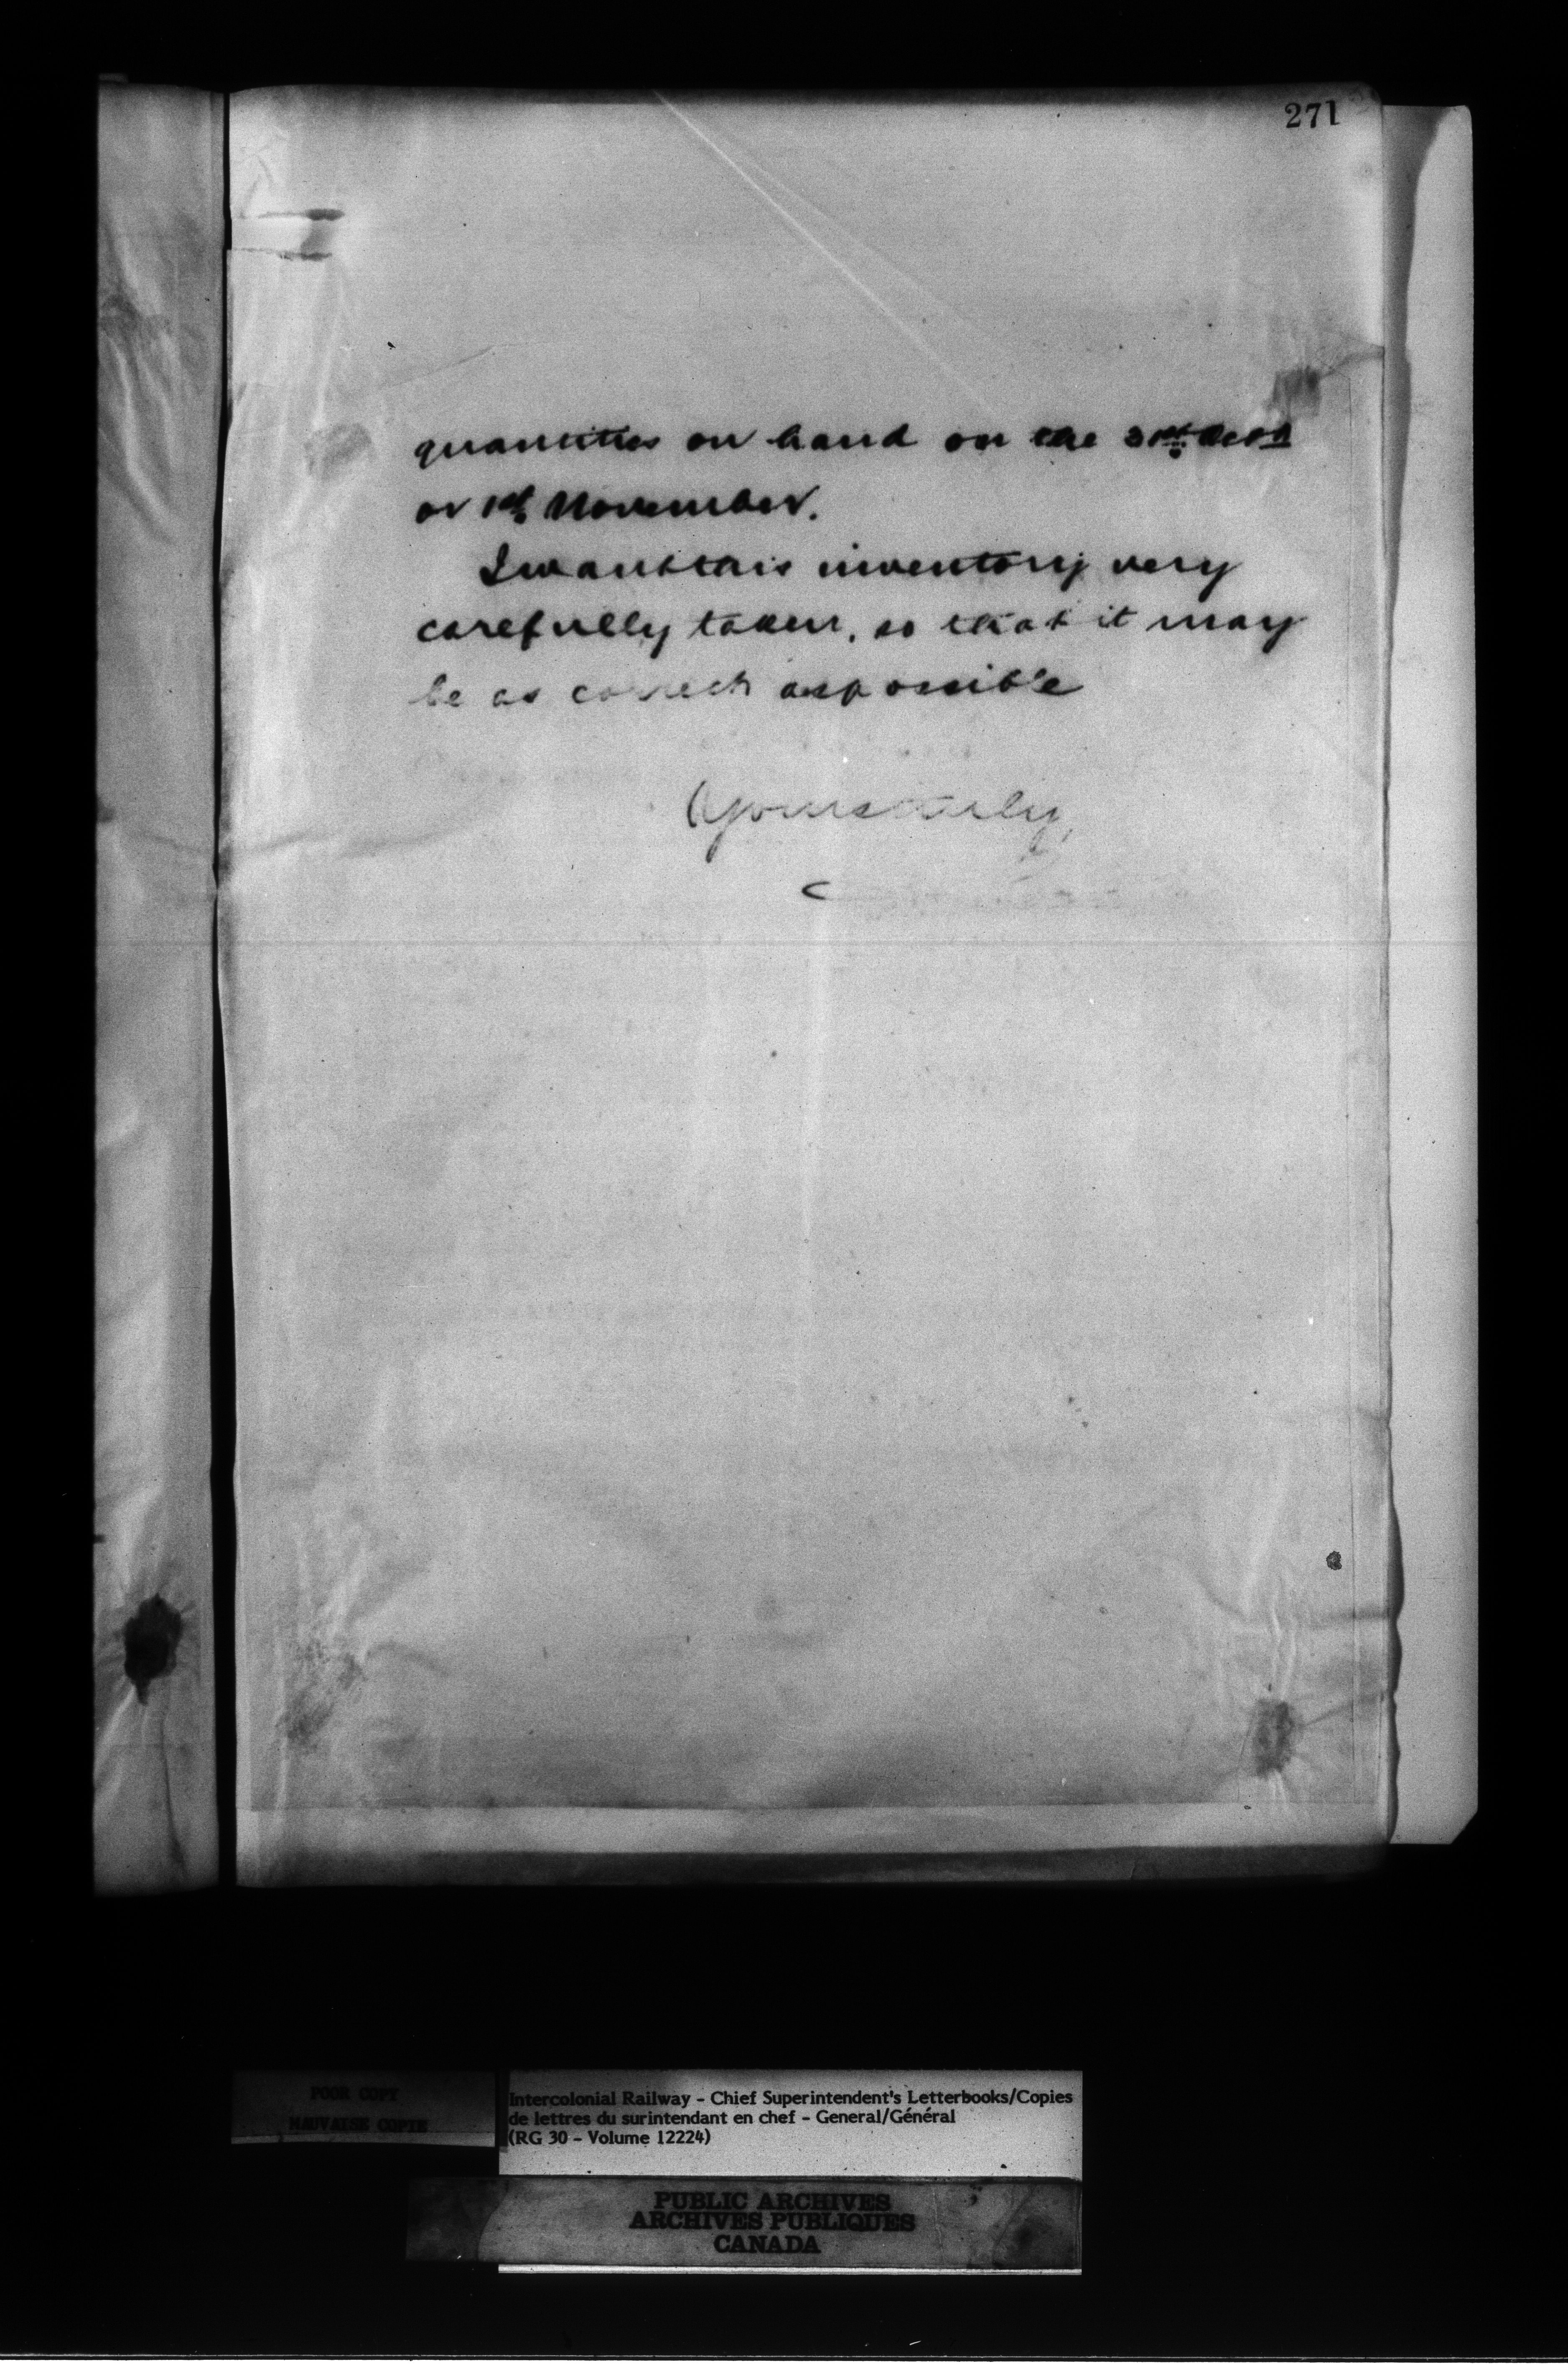 271
quantities on hand on the 31st Octr
or 1st November.
I want this inventory very
carefully taken, so that it may
be as correct as possible
Yours truly,
POOR COPY
MAUVAISE COPIE
Intercolonial Railway - Chief Superintendent's Letterbooks/Copies
de lettres du surintendant en chef - General/Général
(RG 30 - Volume 12224)
PUBLIC ARCHIVES
ARCHIVES PUBLIQUES
CANADA